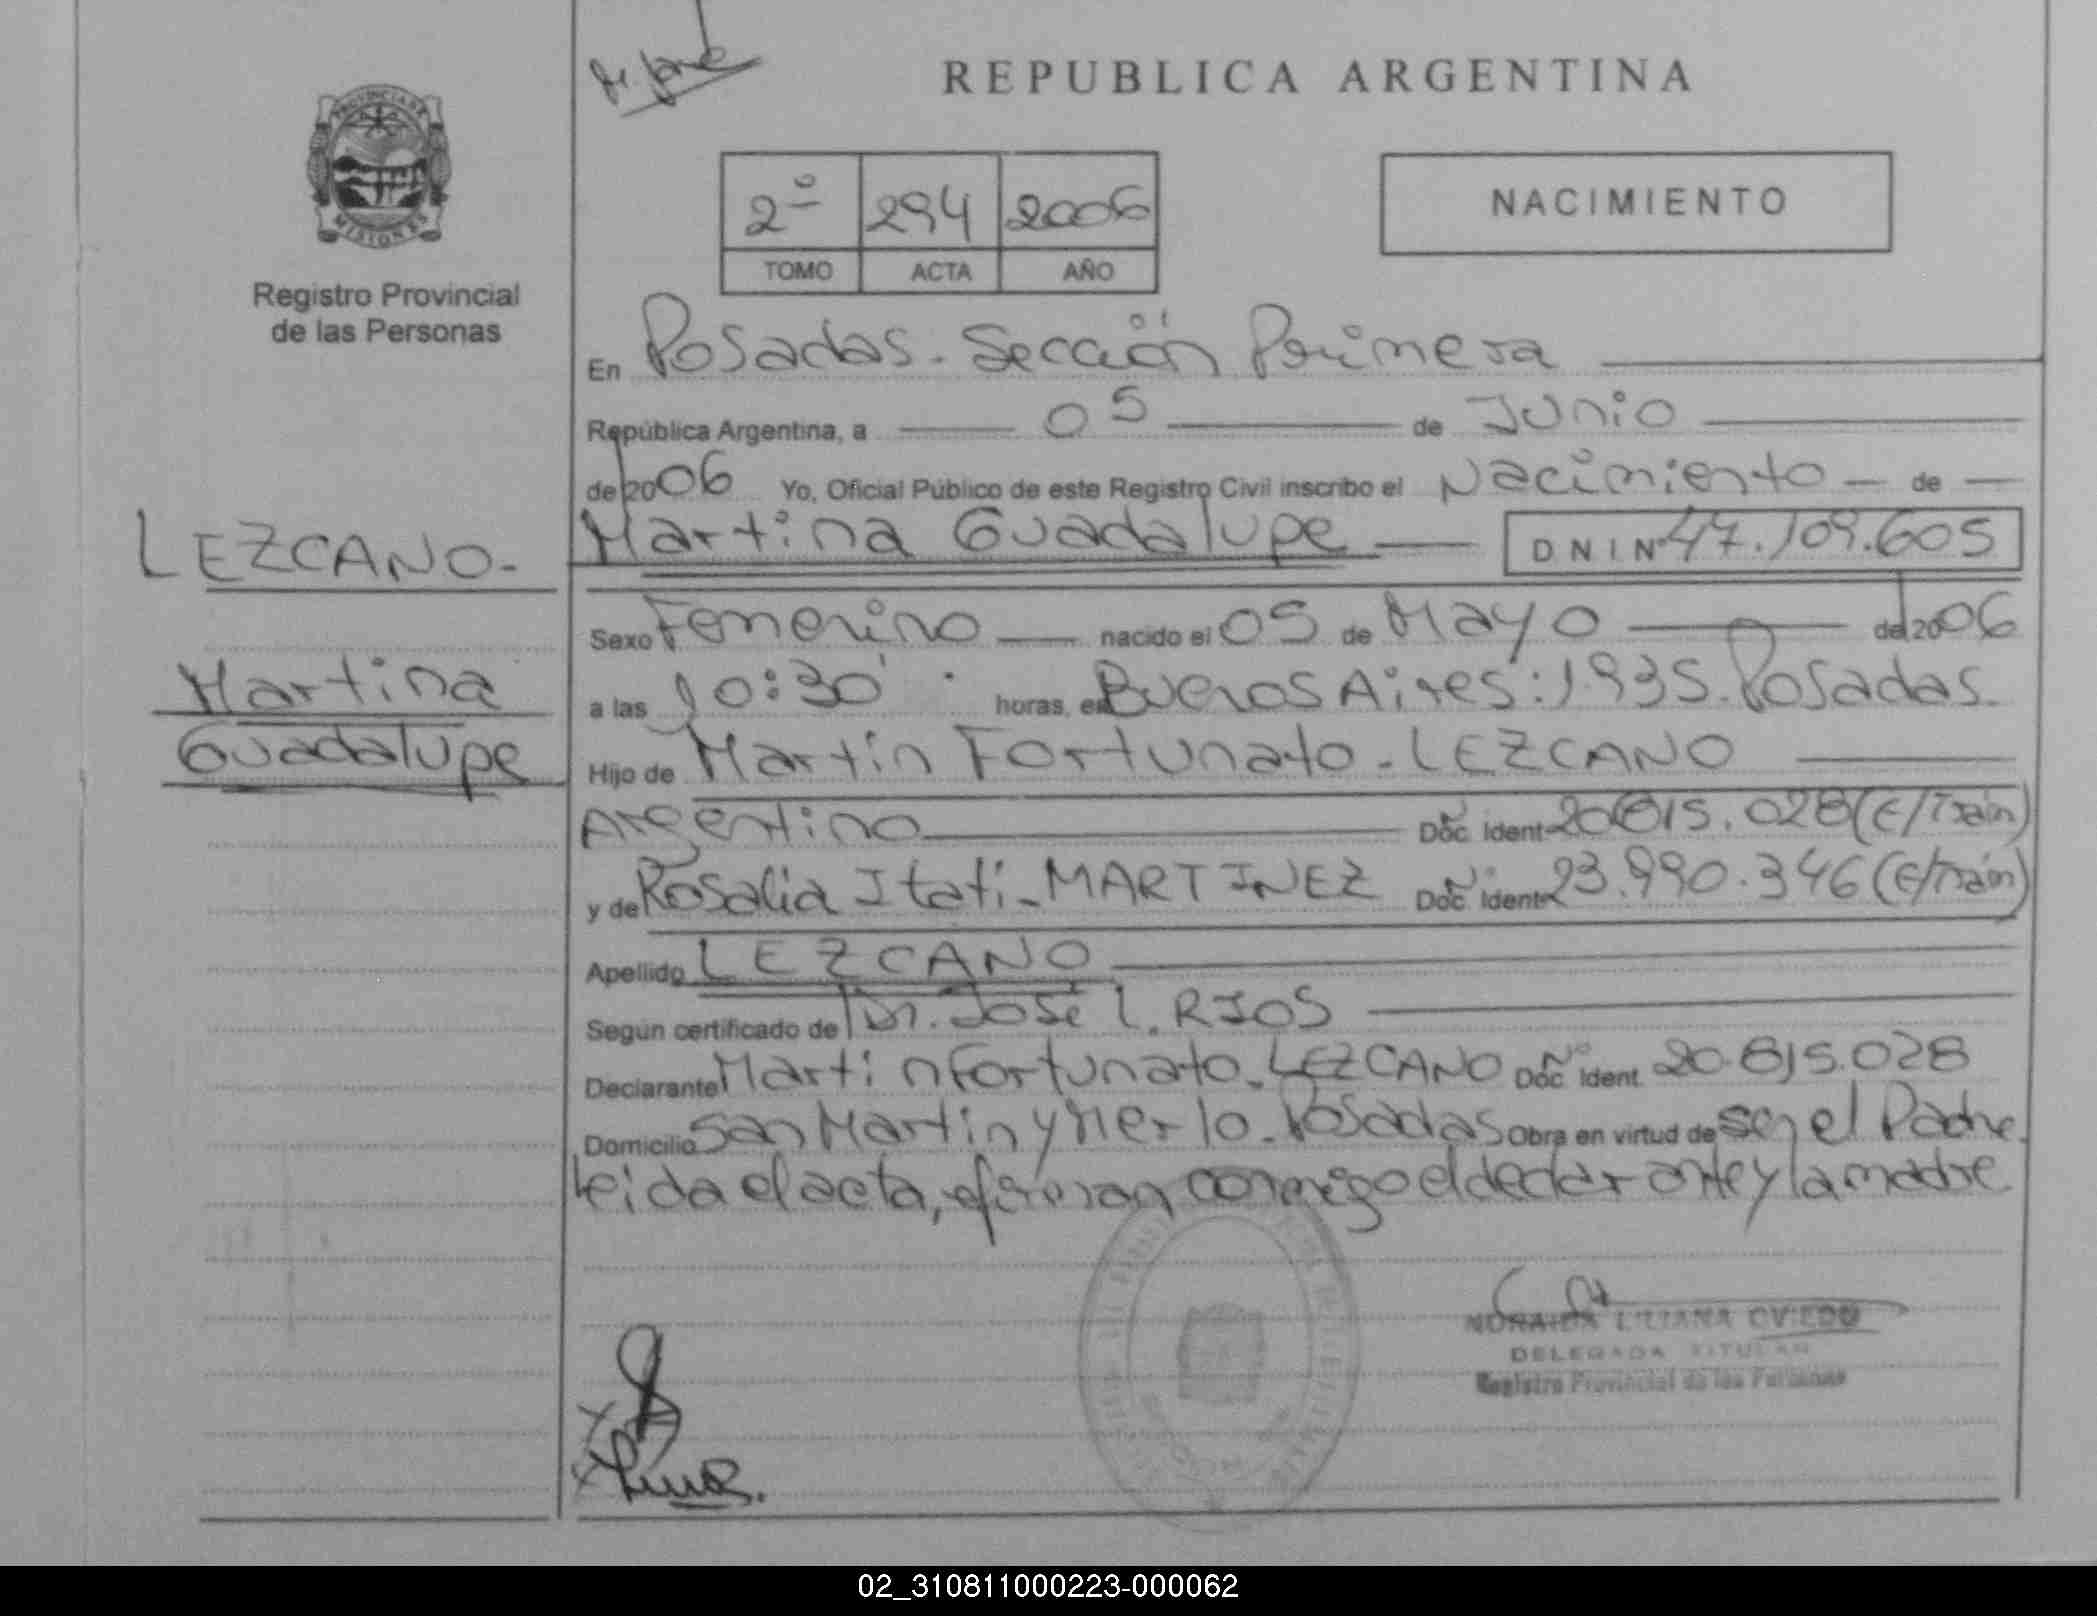 REPUBLICA ARGENTINA
PROVINCIA DE
MISIONES
Registro Provincial
de las Personas
2º 294 2006
TOMO ACTA AÑO
NACIMIENTO
En Posadas. Sección Primera
República Argentina, a 05 de Junio
de 2006 Yo, Oficial Público de este Registro Civil inscribo el Nacimiento de
LEZCANO.
Martina Guadalupe DNI Nº 47.109.605
Sexo Femenino nacido el 05 de Mayo de 2006
Martina
Guadalupe
a las 10:30 horas, en Buenos Aires: 1.935. Posadas.
Hijo de Martin Fortunato. LEZCANO
Argentino Nº Doc. Ident 20.815.028 (E/Trám)
y de Rosalia Itati. MARTINEZ Nº Doc. Ident 23.990.346 (E/Trám)
Apellido LEZCANO
Según certificado de Dr. José L. RIOS
Declarante Martin Fortunato. LEZCANO Nº Doc. Ident. 20.815.028
Domicilio San Martin y Merlo. Posadas Obra en virtud de ser el Padre.
Leida el acta, firman conmigo el declarante y la madre
NORAIDA LILIANA OVIEDO
DELEGADA TITULAR
Registro Provincial de las Personas
02_310811000223-000062